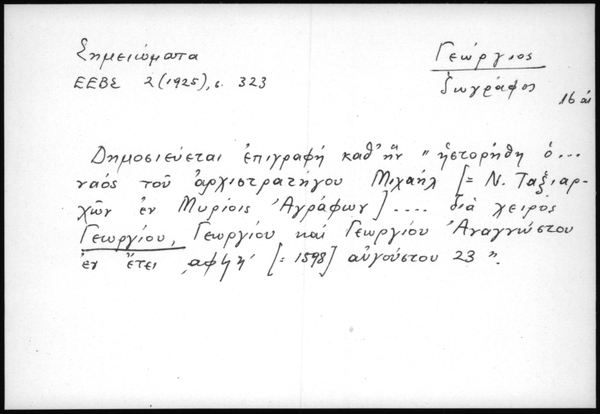 Σημειώματα
Γεώργιος
ΕΕΒΣ 2 (1925), σ. 323
ζωγράφος
16 αἰ
Δημοσιεύεται ἐπιγραφή καθ' ἥν " ἡστορήθη ὁ...
ναός τοῦ ἀρχιστρατήγου Μιχαήλ [= Ν. Ταξιαρ-
χῶν ἐν Μυρίσις Ἀγράφων].... διά χειρός
Γεωργίου, Γεωργίου καί Γεωργίου Ἀναγνώστου
ἐν ἔτει ͵αφϟη' [= 1598] αὐγούστου 23 ".